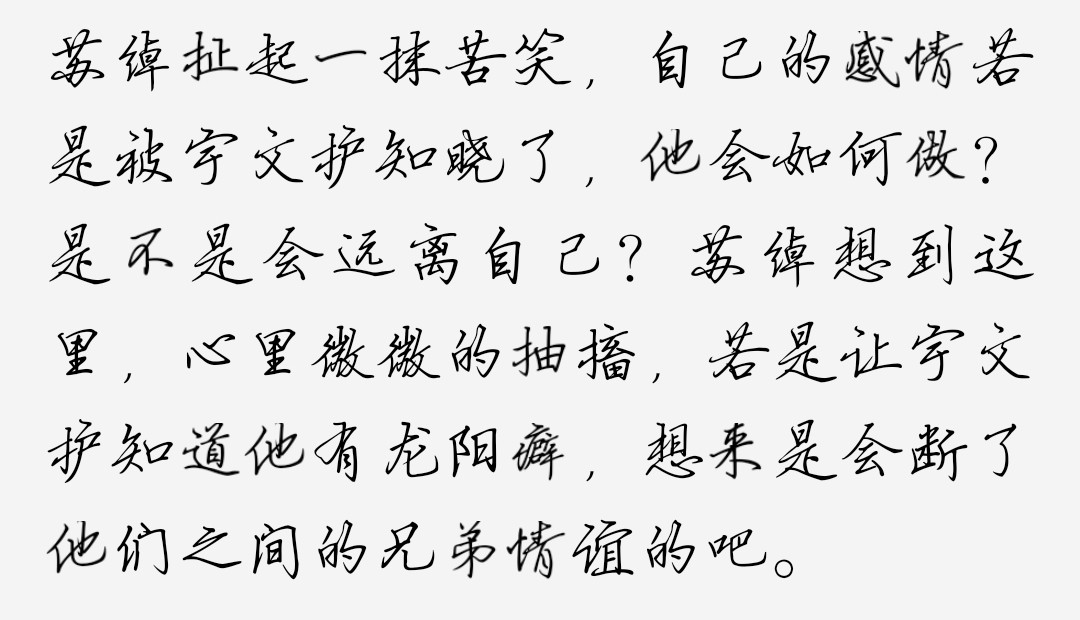 苏绰扯起一抹苦笑，自己的感情若
是被宇文护知晓了，他会如何做？
是不是会远离自己？苏绰想到这
里，心里微微的抽搐，若是让宇文
护知道他有龙阳癖，想来是会断了
他们之间的兄弟情谊的吧。